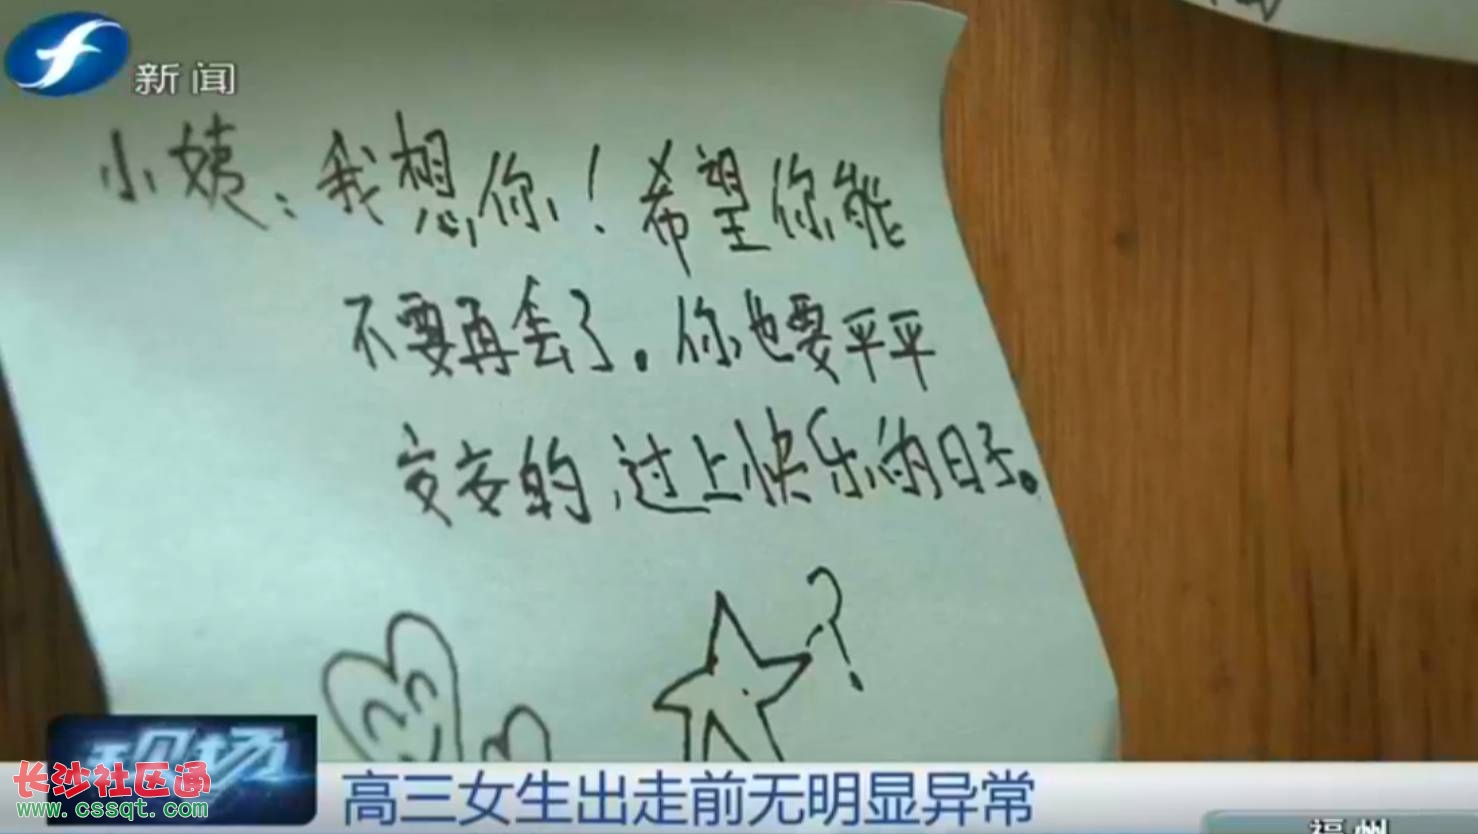 新闻
小姨：我想你！希望你能
不要再丢了。你也要平平
安安的，过上快乐的日子。
现场
长沙社区通
www.cssqt.com
高三女生出走前无明显异常
福州